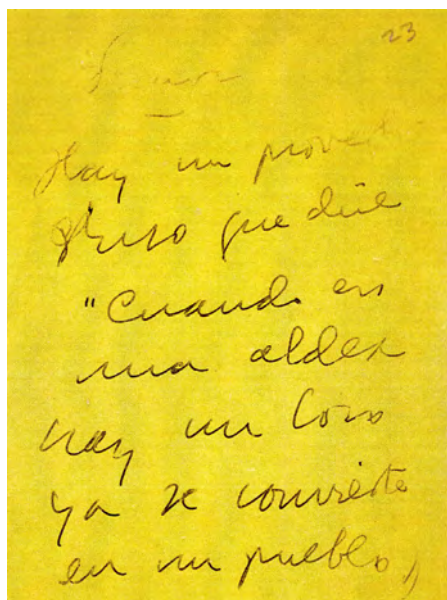 23
Hay un prover
Ruso que dice
"Cuando en
una aldea
hay un loco
ya se convierte
en un pueblo,